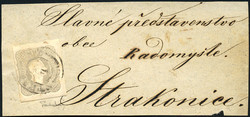 Slavné představenstvo
obce
Radomyšle.
Strakonice.